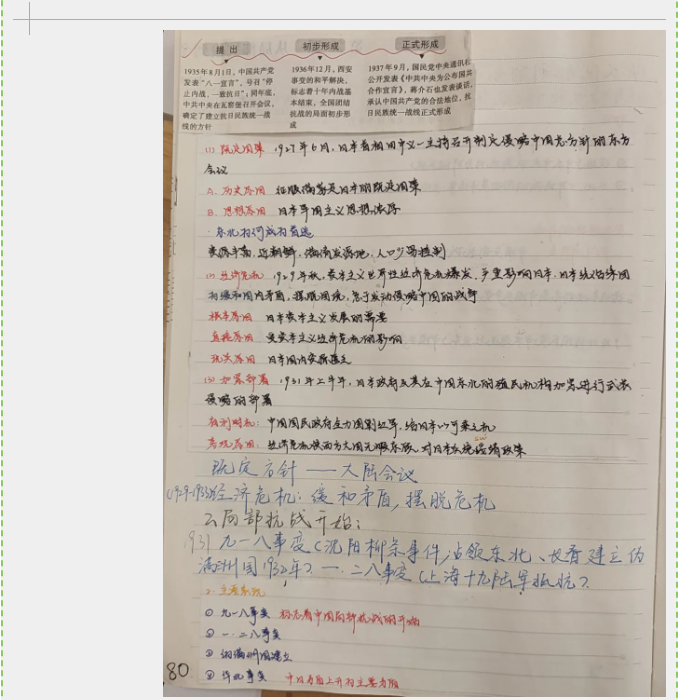 提出
初步形成
正式形成
1935年8月1日，中国共产党
发表“八一宣言”，号召“停
止内战、一致抗日”；同年底，
中共中央在瓦窑堡召开会议，
确定了建立抗日民族统一战
线的方针
1936年12月，西安
事变的和平解决，
标志着十年内战基
本结束，全国团结
抗战的局面初步形
成
1937年9月，国民党中央通讯社
公开发表《中共中央为公布国共
合作宣言》，蒋介石也发表谈话，
承认中国共产党的合法地位，抗
日民族统一战线正式形成
(1) 既定国策 1927年6月，日本首相田中义一主持召开制定侵略中国充分计划的东方
会议
A. 历史原因 征服满蒙是日本的既定国策
B. 思想原因 日本军国主义思想
东北为何成为首选
资源丰富，近朝鲜，人口少易控制
(2) 经济危机 1929年秋，资本主义世界性经济危机爆发，严重影响日本，日本统治集团
为缓和国内矛盾，摆脱困境，急于发动侵略中国的战争
根本原因 日本资本主义发展的需要
直接原因 受资本主义经济危机的影响
现实原因 日本国内资源匮乏
(3) 加紧部署 1931年上半年，日本政府及其在中国东北的殖民机构加紧进行武装
侵略的部署
有利时机：中国国民政府全力围剿红军，给日本以可乘之机
客观原因：经济危机使西方大国无暇东顾，对日本采绥靖政策
既定方针 —— 大陆会议
(1929-1933)经济危机：缓和矛盾，摆脱危机
局部抗战开始：
931 九一八事变（沈阳柳条事件，占领东北、长春建立伪
满洲国1932年）、一·二八事变（上海十九路军抵抗）、
2.
① 九一八事变 标志着中国局部抗战的开始
② 一·二八事变
③ 伪满洲国建立
④ 华北事变 中日矛盾上升为主要矛盾
80